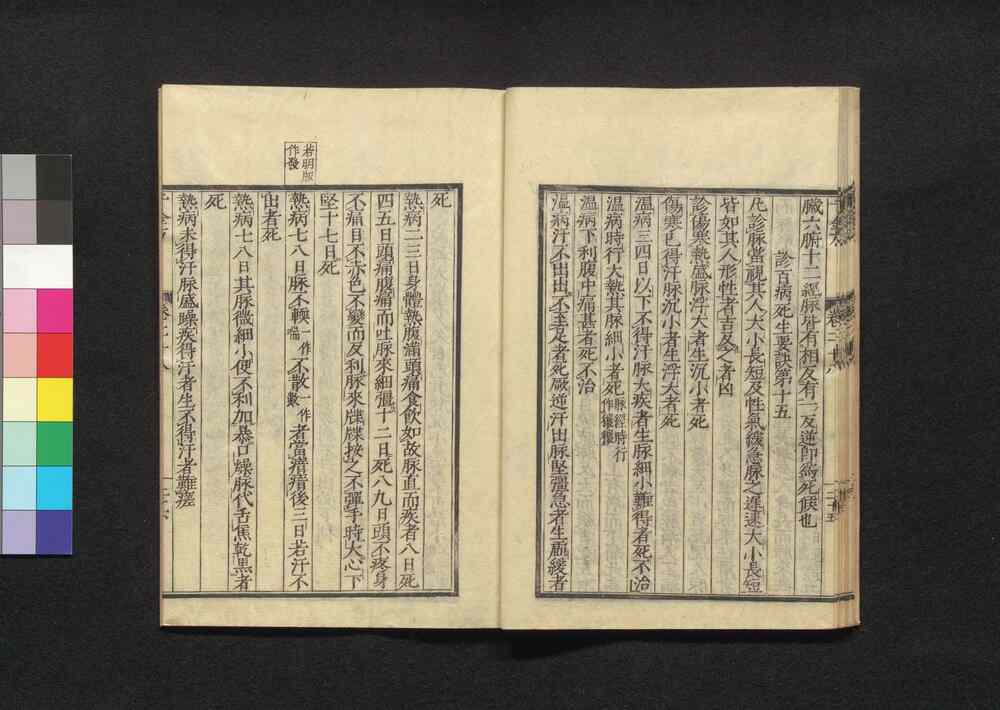 臟六腑十二經脉皆有相反有一反逆即爲死候也
診百病死生要訣第十五
凡診脉當視其人大小長短及性氣緩急脉之遲速大小長短
皆如其人形性者吉反之者凶
診傷寒熱盛脉浮大者生沉小者死
傷寒已得汗脉沉小者生浮大者死
溫病三四日以下不得汗脉大疾者生脉細小難得者死不治
溫病時行大熱其脉細小者死脉經時行作穰穰
溫病下利腹中痛甚者死不治
溫病汗不出出不至足者死厥逆汗出脉堅彊急者生虛緩者
死
熱病二三日身體熱腹滿頭痛食飲如故脉直而疾者八日死
四五日頭痛腹痛而吐脉來細彊十二日死八九日頭不疼身
不痛目不赤色不變而反利脉來牒牒按之不彈手時大心下
堅十七日死
熱病七八日脉不軟一作喘不散一作數者當瘖瘖後三日若汗不
出者死
熱病七八日其脉微細小便不利加暴口燥脉代舌焦乾黑者
死
熱病未得汗脉盛躁疾得汗者生不得汗者難差
若明版
作發